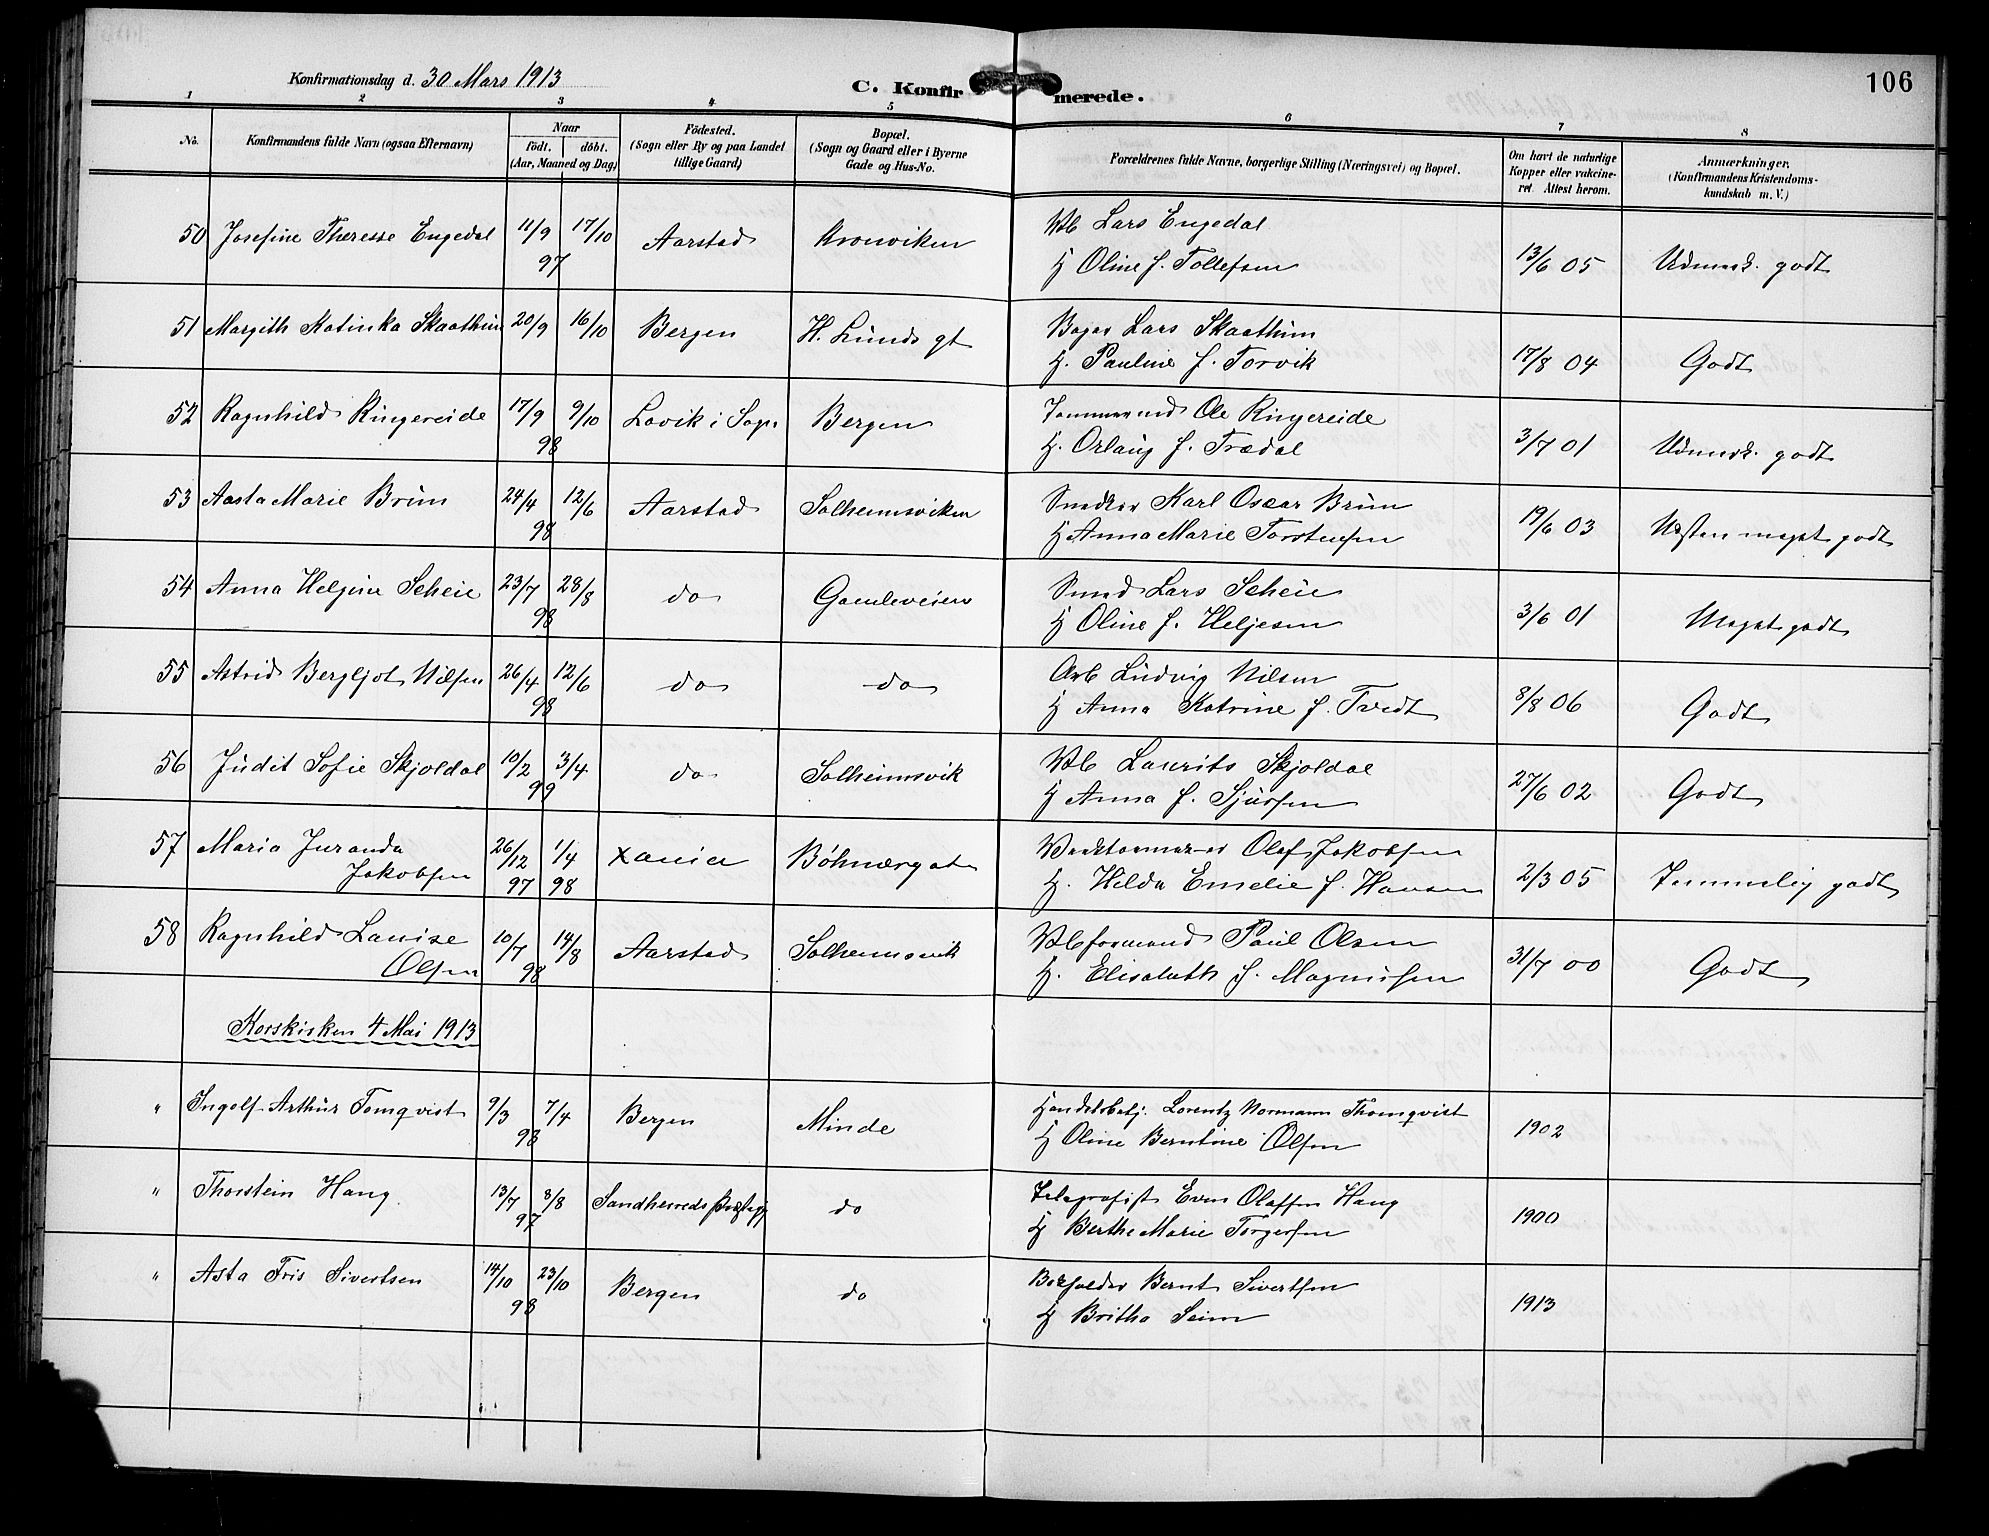 106
Konfirmationsdag d. 30 Mars 1913
C. Konfirmerede.
1 2 3 4 5 6 7 8
No. Konfirmandens fulde Navn (ogsaa Efternavn) Naar födt. döbt. (Aar, Maaned og Dag) Födested. (Sogn eller By og paa Landet tillige Gaard) Bopæl. (Sogn og Gaard eller i Byerne Gade og Hus-No. Forældrenes fulde Navne, borgerlige Stilling (Næringsvei) og Bopæl. Om havt de naturlige Kopper eller vakcineret. Attest herom. Anmærkninger. (Konfirmandens Kristendomskundskab m. V.)
50 Josefine Therese Engedal 11/9 17/10 97 Aarstad Kronviken Lars Engedal
H Oline f. Tollefsen 13/6 05 Udmerk. godt
51 Margith Katinka Skaathun 20/9 16/10 Bergen H. Lunds gt Bager Lars Skaathun
H. Pauline f. Torvik 17/8 04 Godt
52 Ragnhild Ringereide 17/9 9/10 98 Lavik i Sogn Bergen Tømmermd Ole Ringereide
H. Orlaug f. Trædal 3/7 01 Udmerk. godt
53 Aasta Marie Brun 24/4 12/6 98 Aarstad Solheimsviken Snedker Karl Oscar Brun
H Anna Marie Torstensen 19/6 03 Næsten meget godt
54 Anna Helgine Scheie 23/7 28/8 98 do Gamleveien Smed Lars Scheie
H Oline f. Heljesen 3/6 01 Meget godt
55 Astrid Bergljot Nilsen 26/4 12/6 98 do do Arb Ludvig Nilsen
H Anna Katrine f. Tvedt 8/8 06 Godt
56 Judit Sofie Skjoldal 10/2 3/4 99 do Solheimsvik Laurits Skjoldal
H Anna f. Sjursen 27/6 02 Godt
57 Maria Juranda Jakobsen 26/12 97 1/4 98 Xania Böhmergaten Olaf Jakobsen
H. Hilda Emelie f. Hansen 2/3 05 Temmelig godt
58 Ragnhild Lauise Olsen 10/7 14/8 98 Aarstad Solheimsvik Paul Olsen
H. Elisabeth f. Magnusen 31/7 00 Godt
Korskirken 4 Mai 1913
" Ingolf Arthur Tomqvist 9/3 7/4 98 Bergen Minde Handelsbetj. Lorentz Normann Thomqvist
H Oline Berntine Olsen 1902
" Thorstein Hang 13/7 8/8 97 Sandherreds do Telegrafist Even Olaffsen Hang
H Berthe Marie Torgersen 1900
" Asta Fris Sivertsen 14/10 23/10 98 Bergen do Bernt Sivertsen
H Britha Seim 1913